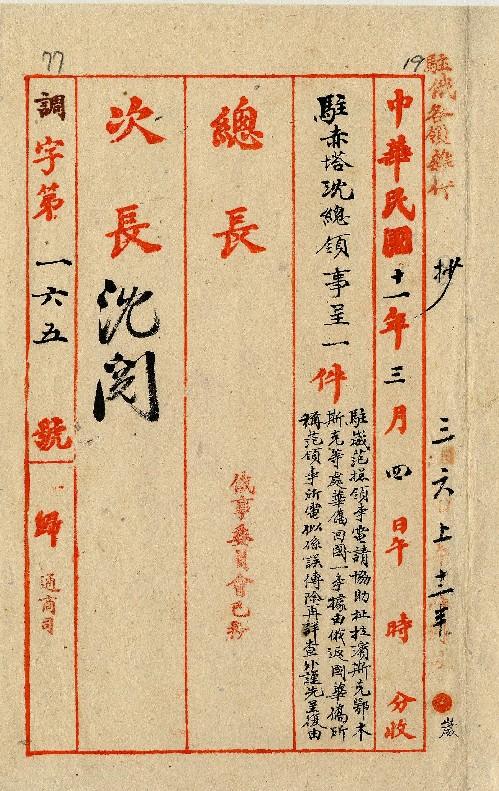 駐俄各領
抄
三 六 上 十三
中華民國十一年三月四日午 時 分收
駐赤塔沈總領事呈一件
駐崴范總領事電請協助
斯克等處華僑回國一事據由俄返國華僑所
稱范領事所電似係誤傳除再詳查外謹先呈復由
總長
次長
沈閱
俄事委員會已
調字第一六五號
歸
通商司
77
19